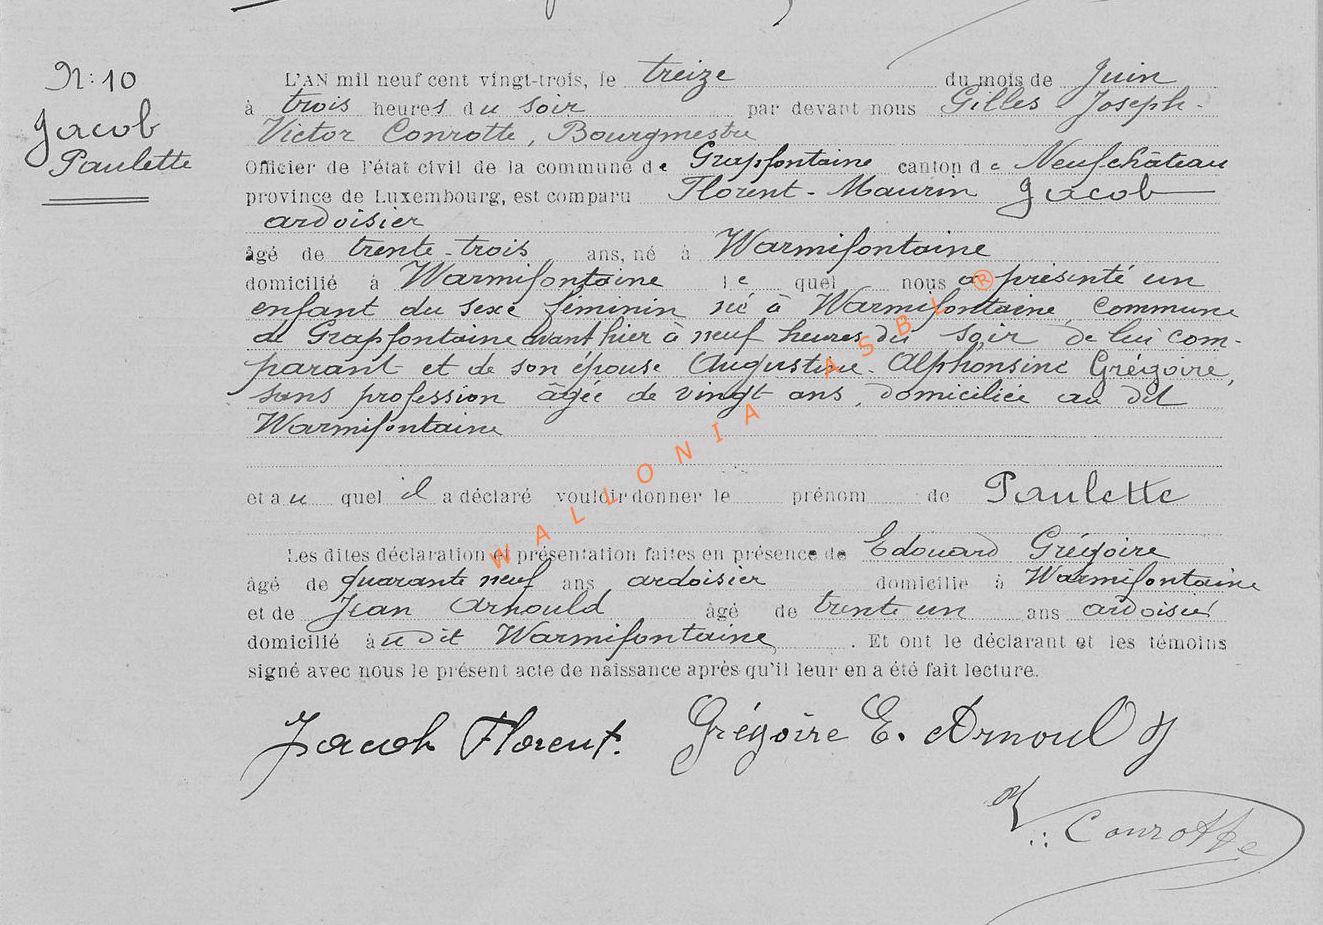 N: 10
Jacob
Paulette
L'AN mil neuf cent vingt-trois, le treize du mois de Juin
à trois heures du soir par devant nous Gilles Joseph-
Victor Conrotte, Bourgmestre
Officier de l'état civil de la commune de Grapfontaine canton de Neufchâteau
province de Luxembourg, est comparu Florent-Maurin Jacob
ardoisier
âgé de trente-trois ans, né à Warmifontaine
domicilié à Warmifontaine lequel nous a présenté un
enfant du sexe féminin né à Warmifontaine, commune
de Grapfontaine avant hier à neuf heures du soir de lui com-
parant et de son épouse Augustine-Alphonsine Grégoire,
sans profession âgée de vingt ans, domiciliée au dit
Warmifontaine
et au quel il a déclaré vouloir donner le prénom de Paulette
Les dites déclaration et présentation faites en présence de Edouard Grégoire
âgé de quarante neuf ans ardoisier domicilié à Warmifontaine
et de Jean Arnould âgé de trente un ans ardoisier
domicilié au dit Warmifontaine. Et ont le déclarant et les témoins
signé avec nous le présent acte de naissance après qu'il leur en a été fait lecture.
Jacob Florent. Grégoire E. Arnould J
V. Conrotte
WALLONIA ASBL ®